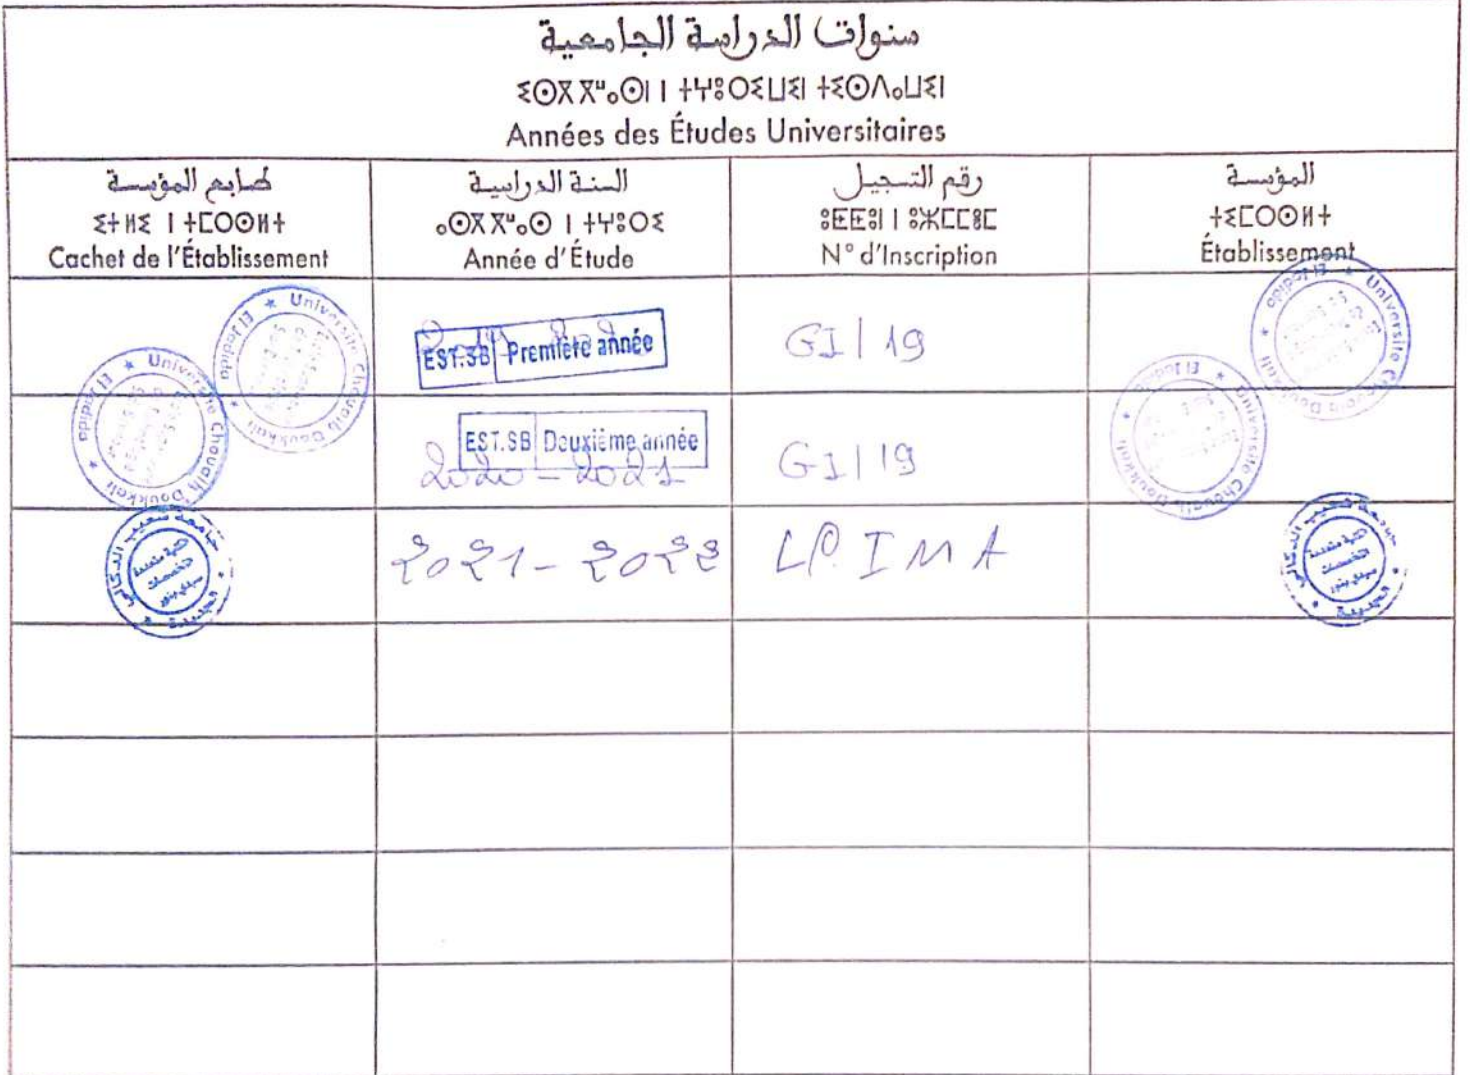 سنوات الدراسة الجامعية
ⵉⵙⴳⴳⵯⴰⵙⵏ ⵏ ⵜⵖⵓⵔⵉⵡⵉⵏ ⵜⵉⵙⴷⴰⵡⵉⵏ
Années des Études Universitaires
طابع المؤسسة
ⵉⵜⵍⵉ ⵏ ⵜⵎⵔⵙⵍⵜ
Cachet de l'Établissement
السنة الدراسية
ⴰⵙⴳⴳⵯⴰⵙ ⵏ ⵜⵖⵓⵔⵉ
Année d'Étude
رقم التسجيل
ⵓⵟⵟⵓⵏ ⵏ ⵓⵣⵎⵎⵓⵎ
N° d'Inscription
المؤسسة
ⵜⵉⵎⵔⵙⵍⵜ
Établissement
Université Chouaib Doukkali
El Jadida
EST.SB Première année
GI/19
Université Chouaib Doukkali
El Jadida
Université Chouaib Doukkali
El Jadida
EST.SB Deuxième année
2020-2021
GI/19
Université Chouaib Doukkali
El Jadida
جامعة شعيب الدكالي
الجديدة
2021-2022
LP.IMA
جامعة شعيب الدكالي
الجديدة